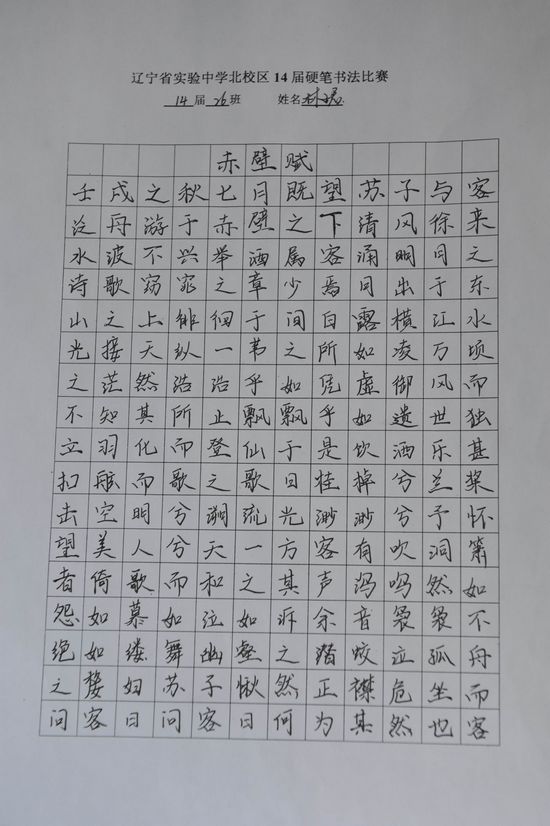 辽宁省实验中学北校区14届硬笔书法比赛
14届 26班 姓名林
赤壁赋
壬戌之秋七月既望苏子与客
泛舟游于赤壁之下清风徐来
水波不兴举酒属客诵明月之
诗歌窈窕之章少焉月出于东
山之上徘徊于间白露横江水
光接天纵一苇之所如凌万顷
之茫然浩浩乎如凭虚御风而
不知其所止飘飘乎如遗世独
立羽化而登仙于是饮酒乐甚
扣舷而歌之歌曰桂棹兮兰桨
击空明兮溯流光渺渺兮予怀
望美人兮天一方客有吹洞箫
者倚歌而和之其声呜呜然如
怨如慕如泣如诉余音袅袅不
绝如缕舞幽壑之潜蛟泣孤舟
之嫠妇苏子愀然正襟危坐而
问客曰问客曰何为其然也客